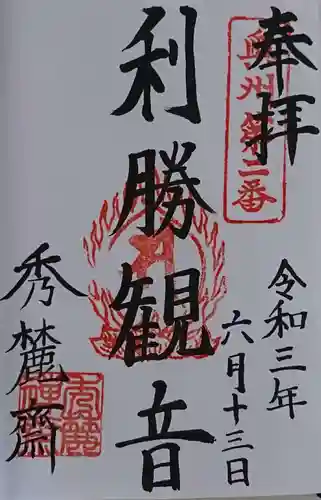 奉拝
奥州第二番
令和三年
六月十三日
利勝観音
秀麓齋